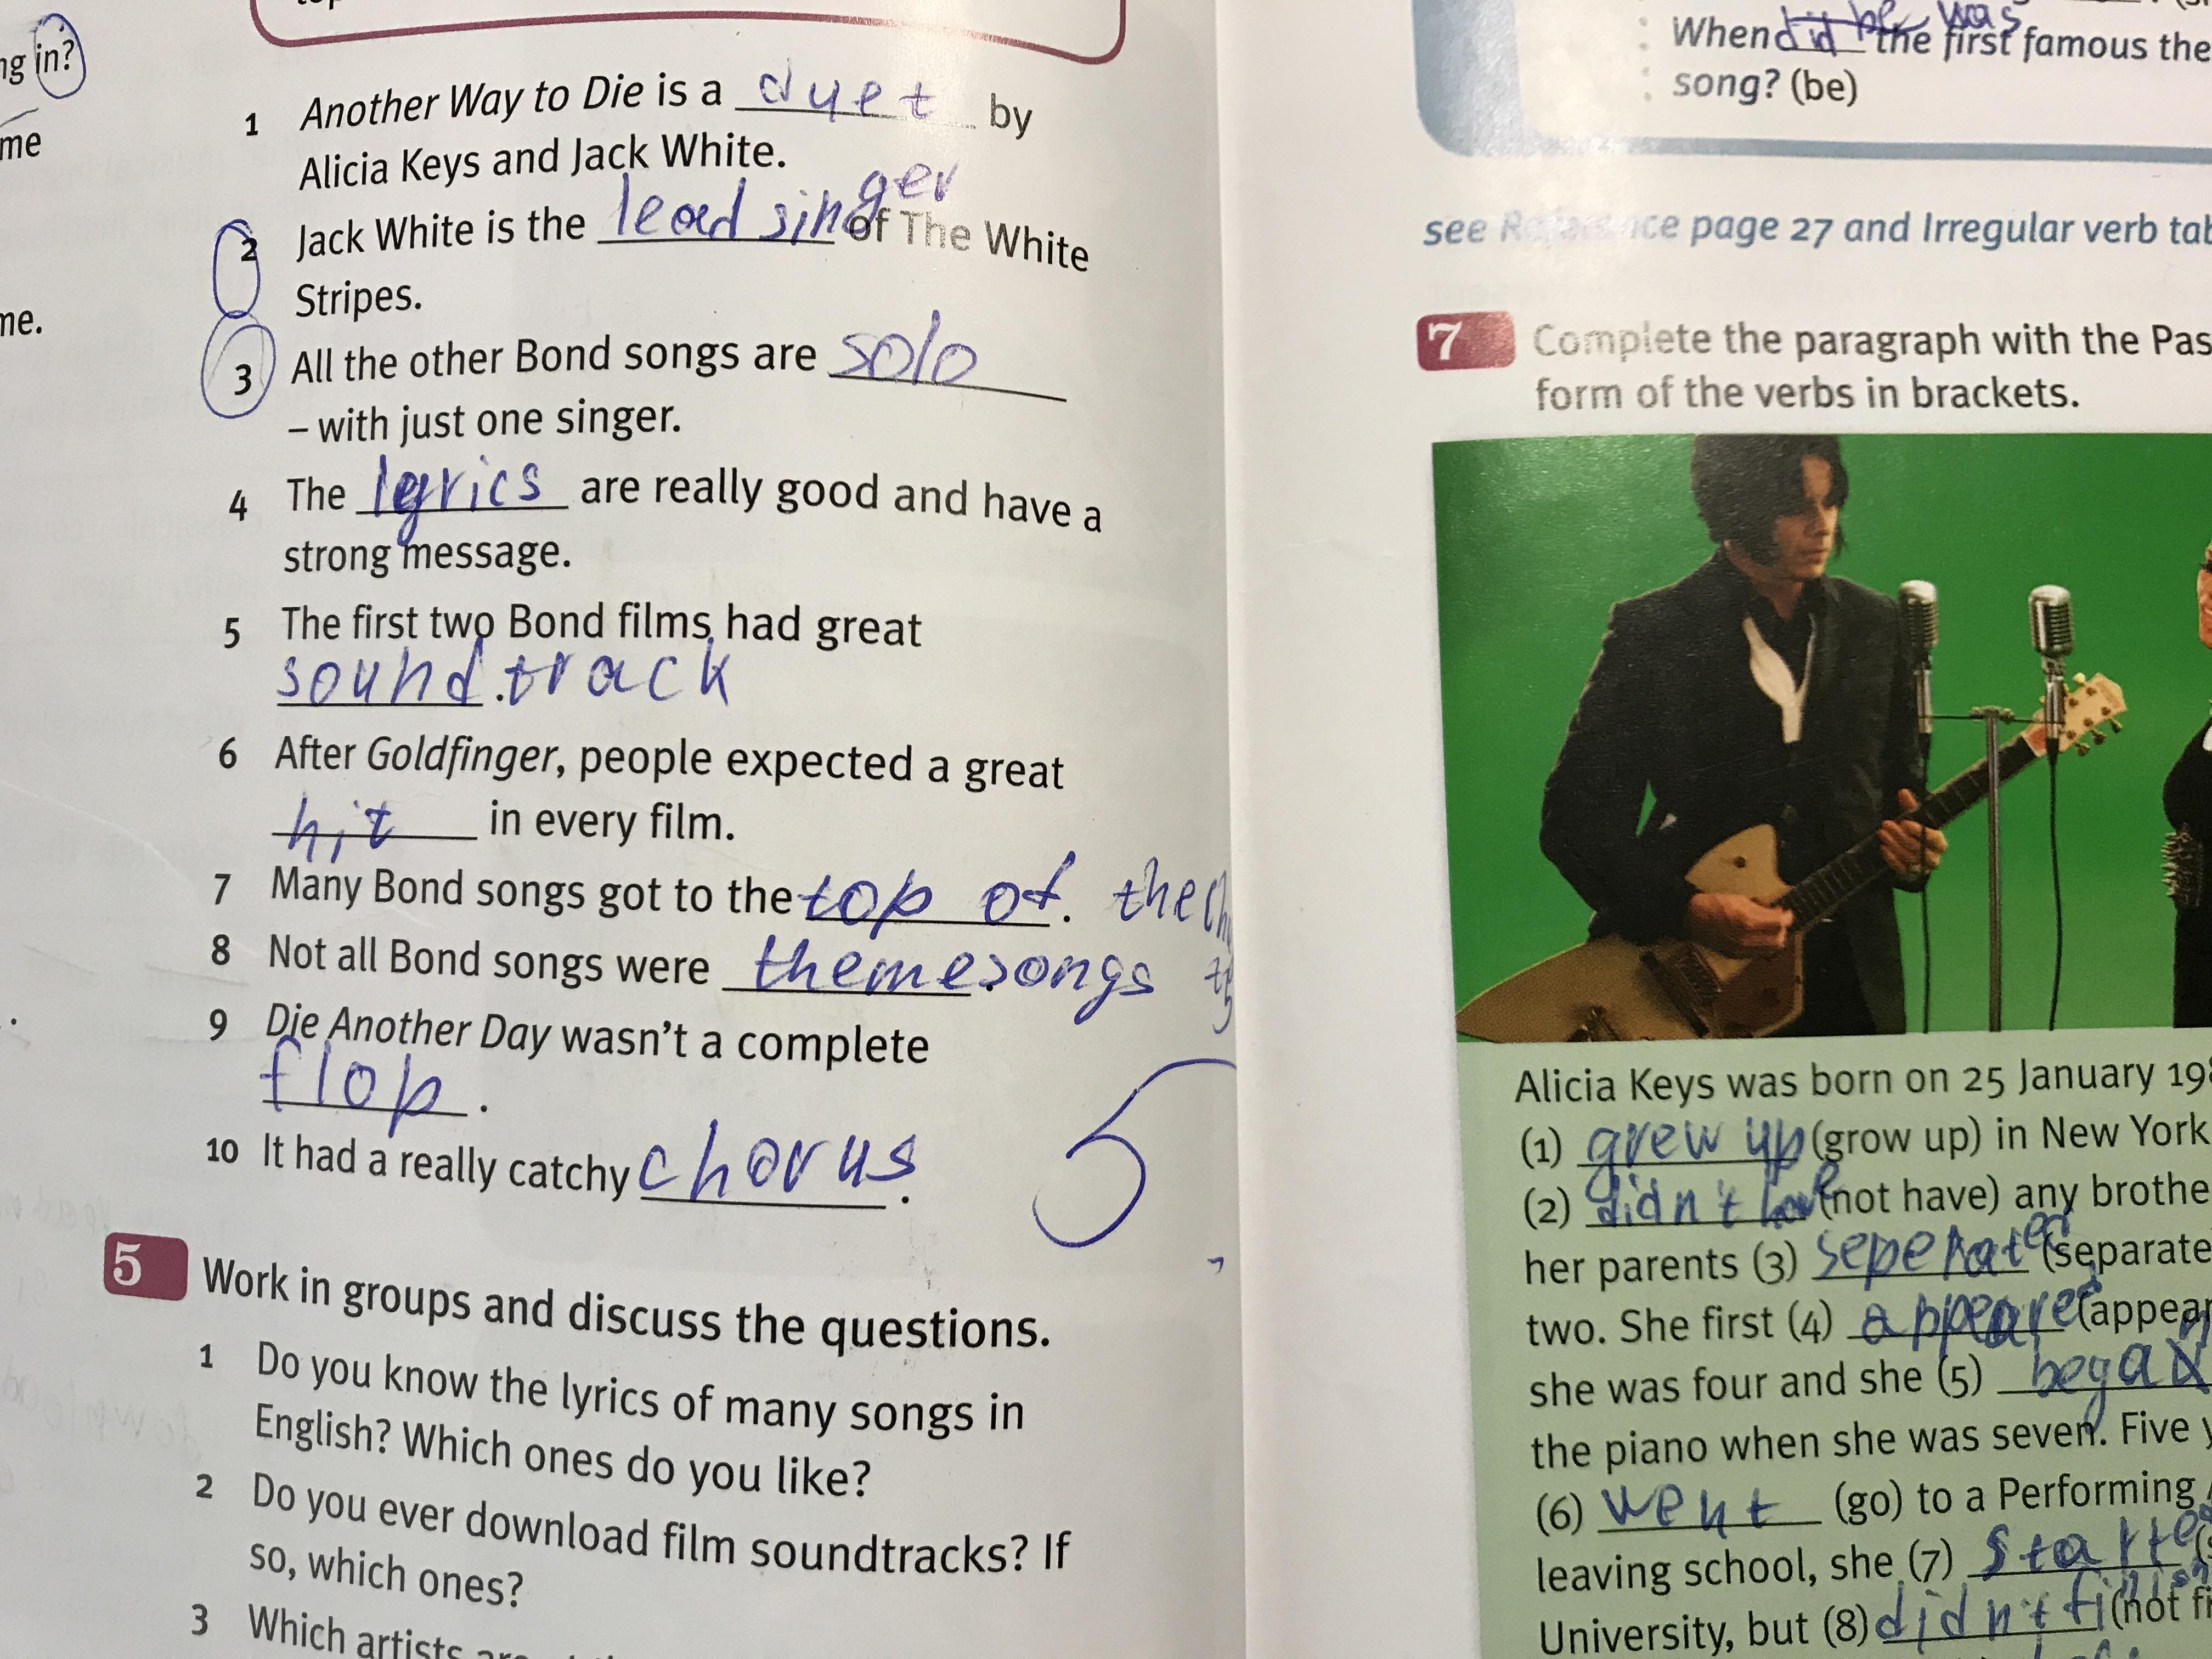 ng in?
me
me.
1 Another Way to Die is a duet by
Alicia Keys and Jack White.
2 Jack White is the lead singer of The White
Stripes.
3 All the other Bond songs are solo
– with just one singer.
4 The lyrics are really good and have a
strong message.
5 The first two Bond films had great
soundtrack.
6 After Goldfinger, people expected a great
hit in every film.
7 Many Bond songs got to the top of. the
8 Not all Bond songs were themesongs.
9 Die Another Day wasn't a complete
flop.
10 It had a really catchy chorus.
5
5 Work in groups and discuss the questions.
1 Do you know the lyrics of many songs in
English? Which ones do you like?
2 Do you ever download film soundtracks? If
so, which ones?
3 Which artists
When did be was the first famous the
song? (be)
see Reference page 27 and Irregular verb tab
7 Complete the paragraph with the Pas
form of the verbs in brackets.
Alicia Keys was born on 25 January 198
(1) grew up (grow up) in New York
(2) didn't have (not have) any brothe
her parents (3) seperated (separate
two. She first (4) appeared (appear
she was four and she (5) began
the piano when she was seven. Five y
(6) went (go) to a Performing A
leaving school, she (7) started (s
University, but (8) didn't finish (not fi